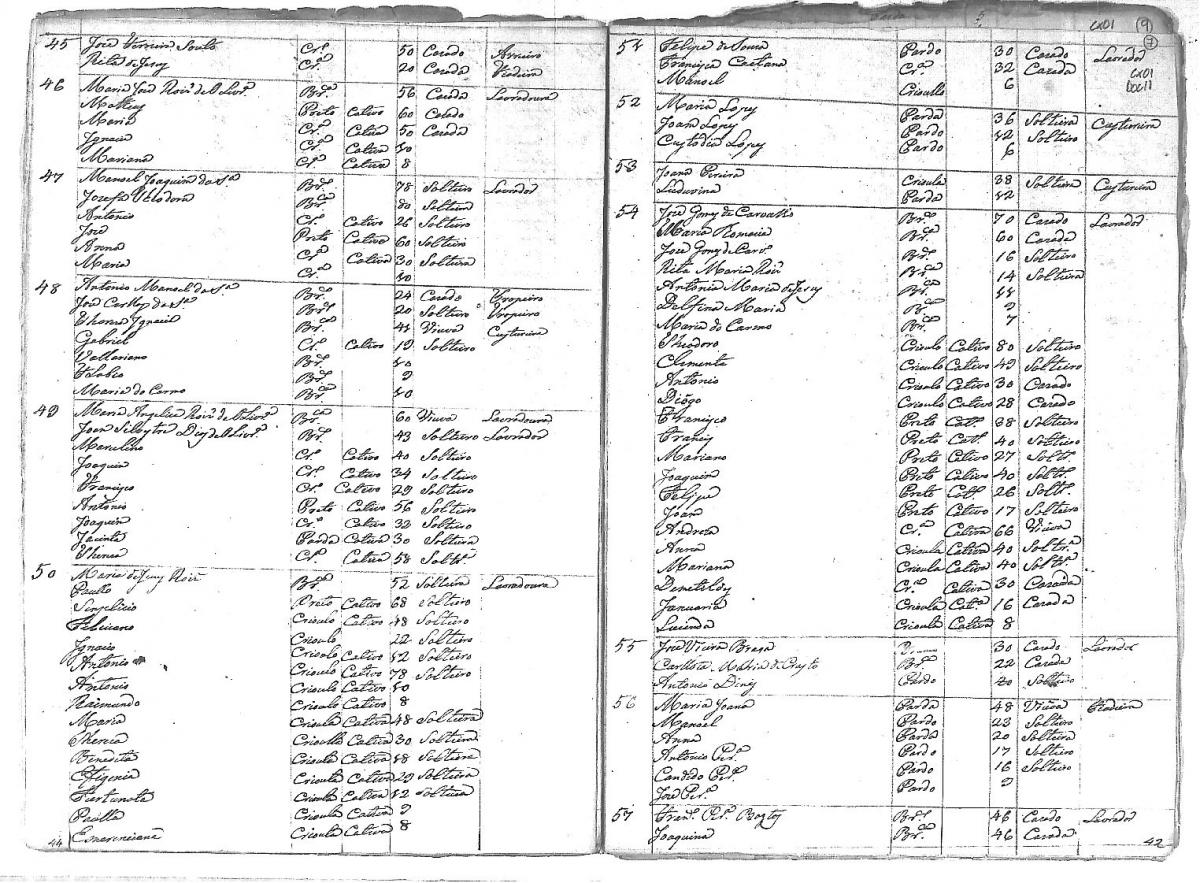 45 Joze Ferreira Souto Cr.º 50 Cazado Arrieiro
Rita de Jesus Cr.ª 20 Cazada Fiadeira
46 Maria Joze Roiz de Olivr.ª Br.ca 56 Cazada Lavradoura
Matheus Preto Cativo 60 Cazado
Maria Cr.ª Cativa 50 Cazada
Ignacia Cr.ª Cativa 10
Mariana Cr.ª Cativa 8
47 Manoel Joaquim da S.ª Br.co 78 Solteiro Lavrador
Jozefa Br.ca 80 Solteira
Antonio Cr.º Cativo 26 Solteiro
Joze Preto Cativo 60 Solteiro
Anna Cr.ª Cativa 30 Solteira
Maria Cr.ª 10
48 Antonio Manoel da S.ª Br.co 24 Cazado Tropeiro
Joze da S.ª Br.co 20 Solteiro Tropeiro
Thereza Ignacia Br.ca 44 Viuva Custureira
Gabriel Cr.º Cativo 19 Solteiro
Valleriano Br.co 10
Br.co 9
Maria do Carmo Br.ca 10
49 Maria Angelica Roiz de Olivr.ª Br.ca 60 Viuva Lavradoura
Joam Silvestre Dias de Olivr.ª Br.co 43 Solteiro Lavrador
Marcelino Cr.º Cativo 40 Solteiro
Joaquim Cr.º Cativo 34 Solteiro
Francisco Cr.º Cativo 29 Solteiro
Antonio Preto Cativo 56 Solteiro
Joaquim Cr.º Cativo 32 Solteiro
Jacinta Parda Cativa 30 Solteira
Thereza Cr.ª Cativa 58 Soltr.ª
50 Maria de Jesus Roiz Br.ca 52 Solteira Lavradoura
Paullo Preto Cativo 68 Solteiro
Simplicio Crioulo Cativo 48 Solteiro
Feliciano Crioulo 22 Solteiro
Ignacio Crioulo Cativo 12 Solteiro
Antonio Crioulo Cativo 78 Solteiro
Antonio Crioulo Cativo 10
Raimundo Crioulo Cativo 8
Maria Crioula Cativa 48 Solteira
Thereza Crioulla Cativa 30 Solteira
Benedita Crioula Cativa 18 Solteira
Efigenia Crioula Cativa 29 Solteira
Fortunata Crioula Cativa 12 Solteira
Paulla Crioula Cativa 9
Esmerenciana Crioula Cativa 8
44
CX01 (9)
(7)
51 Felipe de Souza Pardo 30 Cazado Lavrador
Francisca Caetana Cr.ª 32 Cazada
Manoel Crioullo 6
CX01
DOC11
52 Maria Lopes Parda 36 Solteira Custureira
Joam Lopes Pardo 12 Solteiro
Custodio Lopes Pardo 6
53 Joana Pereira Criola 38 Solteira Custureira
Ludovina Parda 12
54 Joze Gomes de Carvalho Br.co 70 Cazado Lavrador
Maria Romeira Br.ca 60 Cazada
Joze Gomes de Carv.º Br.co 16 Solteiro
Rita Maria Roiz Br.ca 14 Solteira
Antonia Maria de Jesus Br.ca 11
Delfina Maria Br.ca 9
Maria do Carmo Br.ca 7
Theodoro Crioulo Cativo 80 Solteiro
Clemente Crioulo Cativo 49 Solteiro
Antonio Crioulo Cativo 30 Cazado
Diogo Crioulo Cativo 28 Cazado
Francisco Preto Cat.º 38 Solteiro
Francisco Preto Cat.º 40 Solteiro
Mariano Preto Cativo 27 Solt.º
Joaquim Preto Cativo 40 Solt.º
Felipe Preto Cat.º 26 Solt.º
Joam Preto Cativo 17 Solteiro
Andreza Cr.ª Cativa 66 Viuva
Anna Crioula Cativa 40 Soltr.ª
Mariana Crioula Cativa 40 Solt.ª
Cr.ª Cativa 30 Cazada
Januaria Criola Cat.ª 16 Cazada
Lucinda Crioula Cativa 8
55 Joze Vieira Braga 30 Cazado Lavrador
Carllota Maria Br.ca 22 Cazada
Antonio Diniz Pardo 20 Solteiro
56 Maria Joana Parda 48 Viuva Fiadeira
Manoel Pardo 23 Solteiro
Anna Parda 20 Solteira
Antonio Per.ª Pardo 17 Solteiro
Candido Per.ª Pardo 16 Solteiro
Joze Per.ª Pardo 9
57 Fran.co Per.ª Bastos Br.co 46 Cazado Lavrador
Joaquina Br.ca 46 Cazada
42